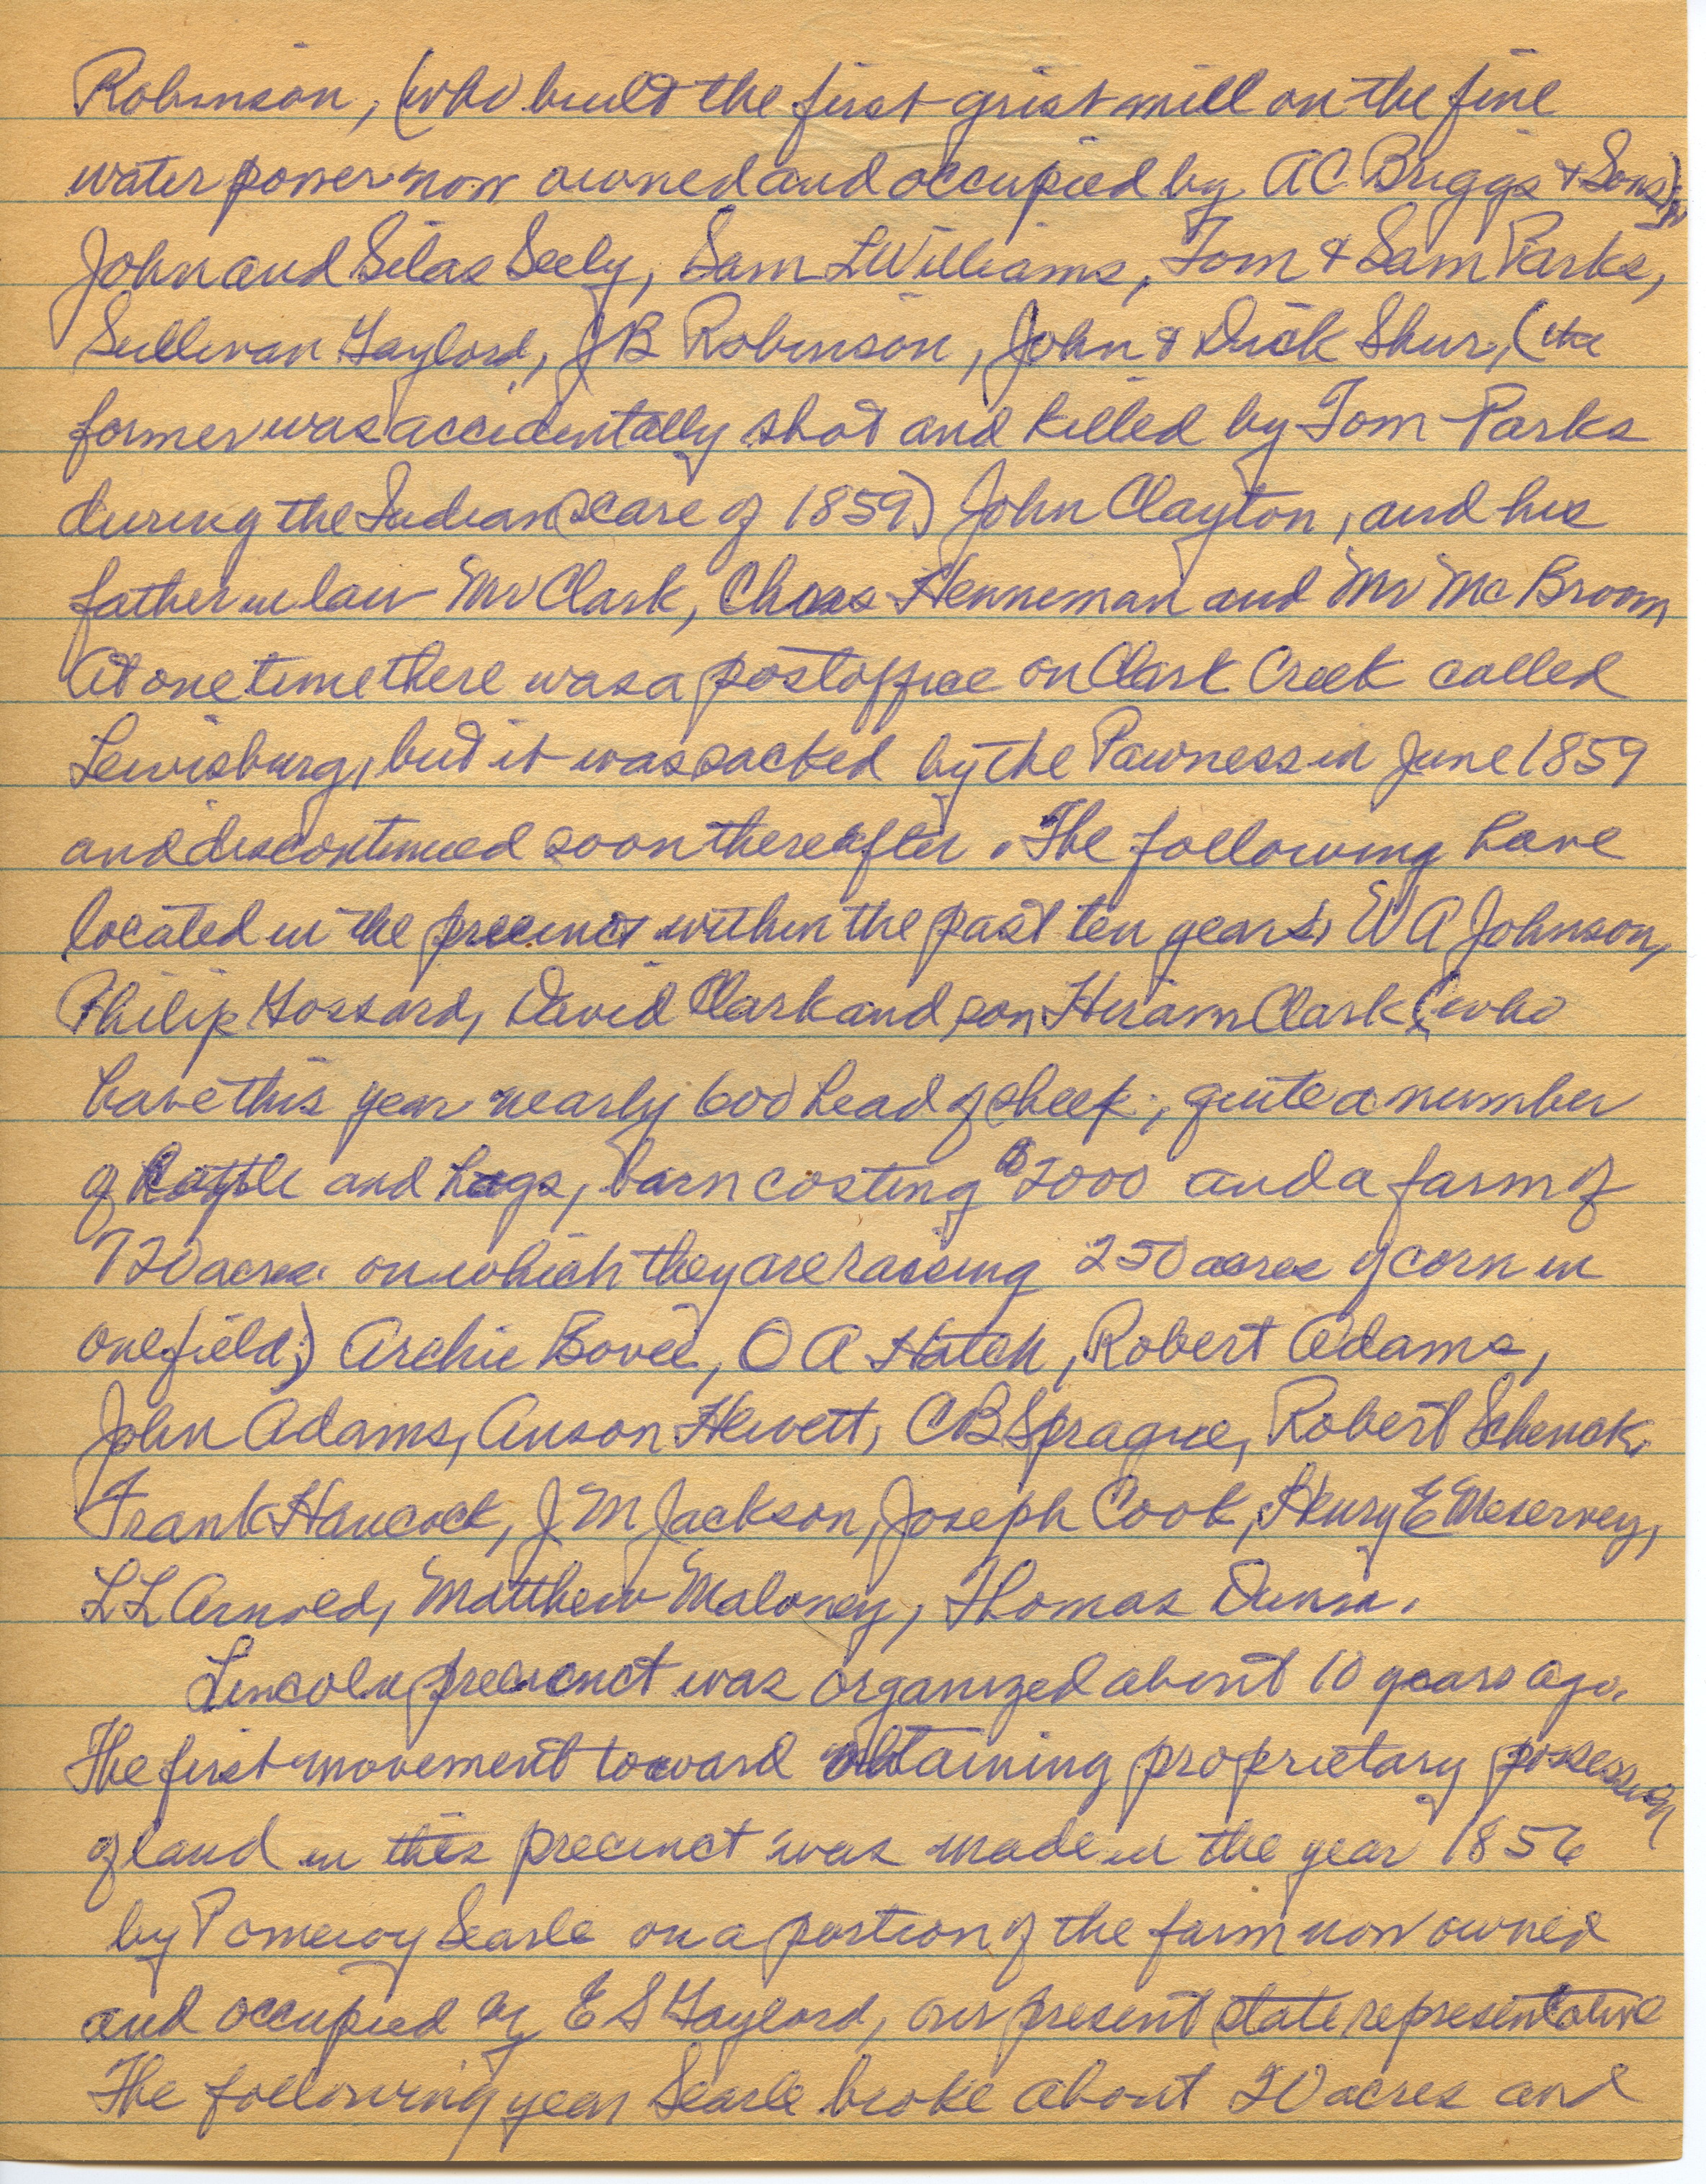 Robinson, (who built the first grist mill on the fine
water power now owned and occupied by A C. Briggs & Sons);
John and Silas Seely, Sam L Williams, Tom & Sam Parks,
Sullivan Gaylord, J B Robinson, John & Dick Shur, (the
former was accidentally shot and killed by Tom Parks
during the Indian scare of 1859) John Clayton, and his
father in law Mr Clark, Chas Henneman and Mr Mc Broom
At one time there was a post office on Clark Creek called
Lewisburg, but it was sacked by the Pawness in June 1859
and discontinued soon thereafter. The following have
located in the precinct within the past ten years, W A Johnson,
Philip Gossard, David Clark and son Hiram Clark (who
have this year nearly 600 head of sheep, quite a number
of cattle and hogs, barn costing $2000 and a farm of
720 acres on which they are raising 250 acres of corn in
one field;) Archie Bovee, O A Hatch, Robert Adams,
John Adams, Anson Hewett, C B Sprague, Robert Schenck,
Frank Hancock, J M Jackson, Joseph Cook, Henry E Meservey,
L L Arnold, Matthew Maloney, Thomas Dunn.
Lincoln precinct was organized about 10 years ago.
The first movement toward obtaining proprietary possession
of land in this precinct was made in the year 1856
by Pomeroy Searle on a portion of the farm now owned
and occupied by E S Gaylord, our present state representative
The following year Searle broke about 20 acres and